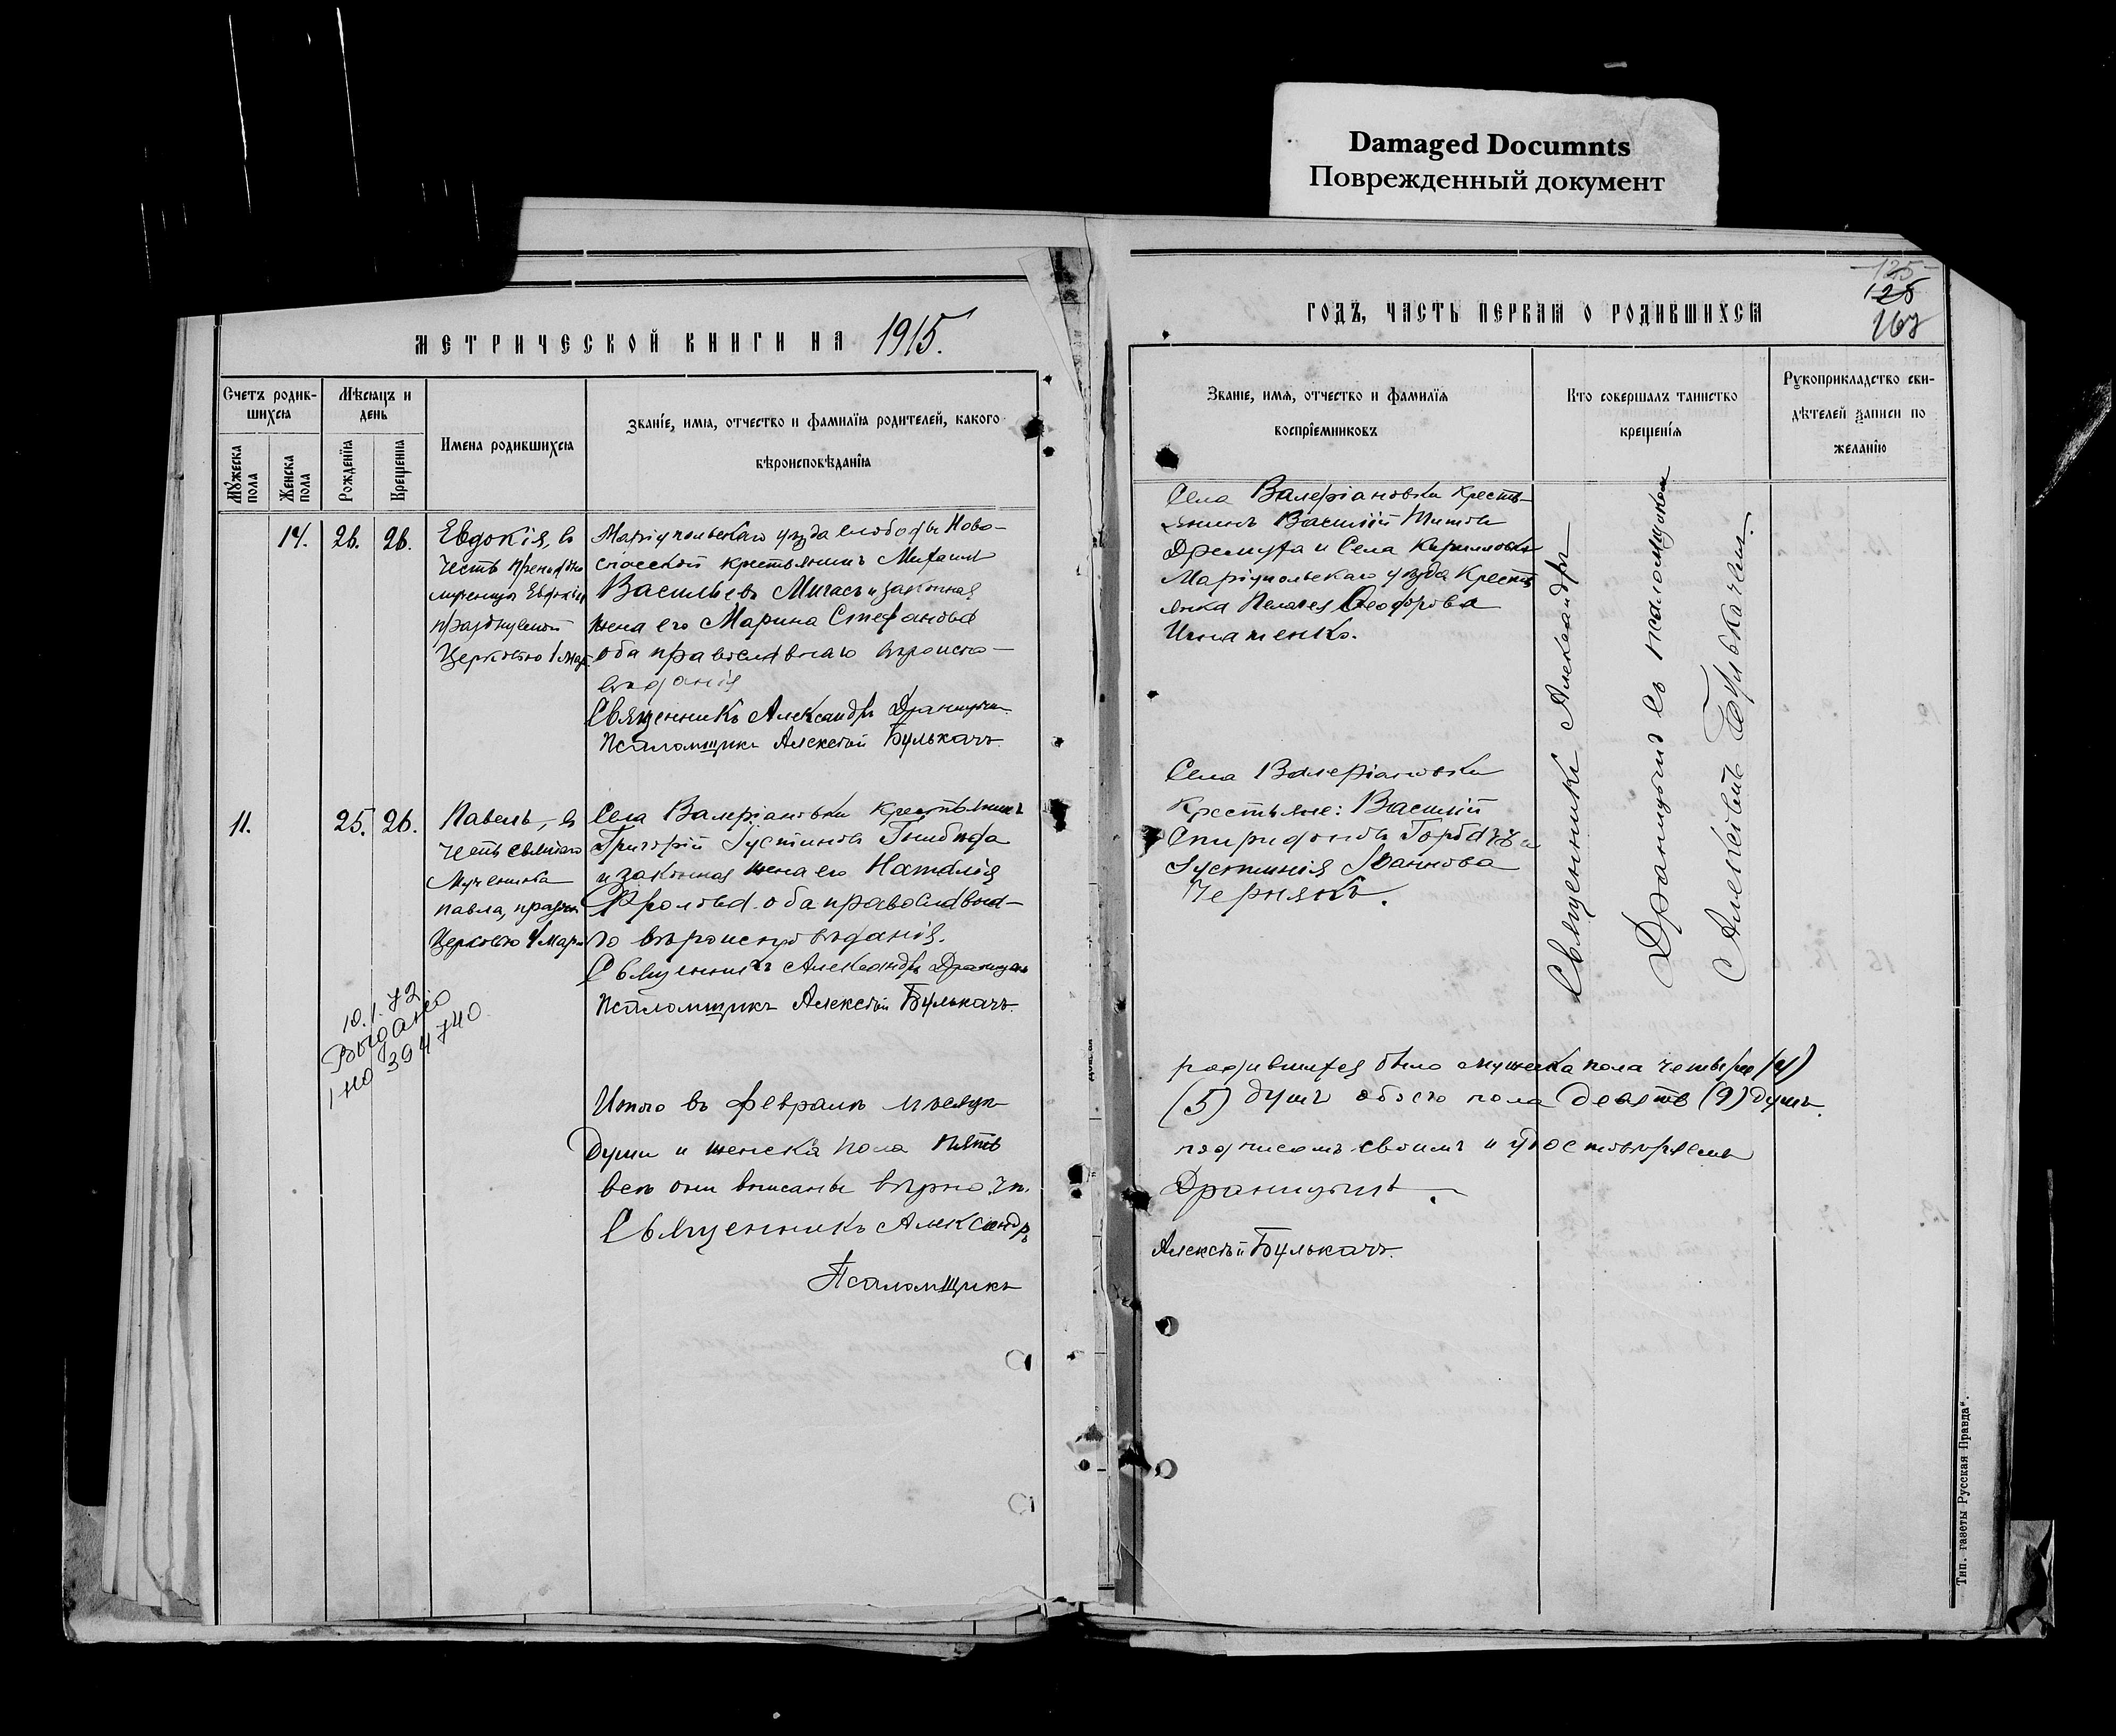 Damaged Documnts
Поврежденный документ
МЕТРИЧЕСКОЙ КНИГИ НА 1915.
Счетъ родив-
шихся
Мѣсяцъ и
день
Имена родившихся
Званіе, имя, отчество и фамилія родителей, какого
вѣроисповѣданія
Мужеска
пола
Женска
пола
Рожденія
Крещенія
14. 26. 26.
Евдокія, въ
честь
мученицы Евдокіи
празднуемой
Церковью 1 Мар.
Маріупольскаго уѣзда слободы Ново-
спасской крестьянинъ Михаилъ
Васильевъ Мигасъ и законная
жена его Марина Стефанова
оба православнаго вѣроиспо-
вѣданія
Священникъ Александръ
Псаломщикъ Алексѣй Булькачъ.
11. 25. 26.
Павелъ, въ
честь святаго
Мученика
Павла, праздн
Церковью 4 Мар
Села Валеріановки крестьянинъ
Григорій Іустиновъ
и законная жена его Наталія
Фролова оба православна-
го вѣроисповѣданія.
Священникъ Александръ
Псаломщикъ Алексѣй Булькачъ.
10.1.72
Выдано
І НО 394740
Итого въ февралѣ мѣсяцѣ
души и женска пола пять
всѣ они вписаны вѣрно.
Священникъ Александръ
Псаломщикъ
ГОДЪ, ЧАСТЬ ПЕРВАЯ О РОДИВШИХСЯ
125
125
167
Званіе, имя, отчество и фамилія
воспріемниковъ
Кто совершалъ таинство
крещенія
Рукоприкладство сви-
дѣтелей записи по
желанію
Села Валеріановки кресть-
янинъ Василій Титовъ
Дремуха и Села Кирилловки
Маріупольскаго уѣзда крестъ
янка Пелагея Ѳеодорова
Игнатенко.
Села Валеріановки
Крестьяне: Василій
Спиридоновъ Горбачъ и
Іустинія Іоаннова
Чернякъ.
Священникъ Александръ
съ псаломщикомъ
Алексѣемъ Булькачемъ.
родившихся было мужска пола четыре (4)
(5) душъ обоего пола девять (9) душъ.
подписомъ своимъ и удостовѣряемъ
Алексѣй Булькачъ.
Тип. газеты Русская Правда".